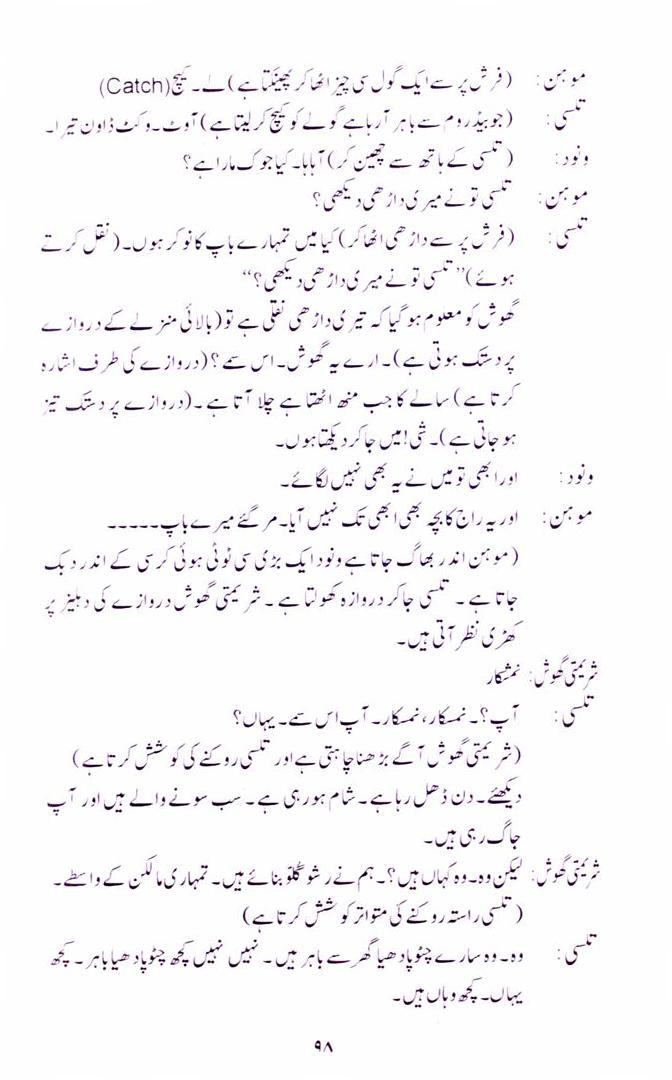 موہن : (فرش پر سے ایک گول سی چیز اٹھا کر پھینکتا ہے) لے۔ کیچ (Catch)
تلسی : (جو بیڈ روم سے باہر آرہا ہے گولے کو کیچ کر لیتا ہے) آوٹ۔ وکٹ ڈاون تیرا۔
ونود : (تلسی کے ہاتھ سے چھین کر) آہاہا۔ کیا جوک مارا ہے؟
موہن : تلسی تو نے میری داڑھی دیکھی؟
تلسی : (فرش پر سے داڑھی اٹھا کر) کیا میں تمہارے باپ کا نوکر ہوں۔ (نقل کرتے
ہوئے) ”تلسی تو نے میری داڑھی دیکھی؟“
گھوش کو معلوم ہو گیا کہ تیری داڑھی نقلی ہے تو (بالائی منزلے کے دروازے
پر دستک ہوتی ہے)۔ ارے یہ گھوش۔ اس سمے؟ (دروازے کی طرف اشارہ
کرتا ہے) سالے کا جب منھ اٹھتا ہے چلا آتا ہے۔ (دروازے پر دستک تیز
ہو جاتی ہے)۔ شی! میں جا کر دیکھتا ہوں۔
ونود : اور ابھی تو میں نے یہ بھی نہیں لگائے۔
موہن : اور یہ راج کا بچہ بھی ابھی تک نہیں آیا۔ مر گئے میرے باپ۔۔۔۔۔
(موہن اندر بھاگ جاتا ہے ونود ایک بڑی سی ٹوٹی ہوئی کرسی کے اندر دبک
جاتا ہے۔ تلسی جا کر دروازہ کھولتا ہے۔ شریمتی گھوش دروازے کی دہلیز پر
کھڑی نظر آتی ہیں۔
شریمتی گھوش : نمشکار
تلسی : آپ؟۔ نمسکار، نمسکار۔ آپ اس سمے۔ یہاں؟
(شریمتی گھوش آگے بڑھنا چاہتی ہے اور تلسی روکنے کی کوشش کرتا ہے)
دیکھئے۔ دن ڈھل رہا ہے۔ شام ہو رہی ہے۔ سب سونے والے ہیں اور آپ
جاگ رہی ہیں۔
شریمتی گھوش : لیکن وہ۔ وہ کہاں ہیں؟۔ ہم نے رشوگلو بنائے ہیں۔ تمہاری مالکن کے واسطے۔
(تلسی راستہ روکنے کی متواتر کوشش کرتا ہے)
تلسی : وہ۔ وہ سارے چٹوپادھیا گھر سے باہر ہیں۔ نہیں نہیں کچھ چٹوپادھیا باہر۔ کچھ
یہاں۔ کچھ وہاں ہیں۔
۹۸